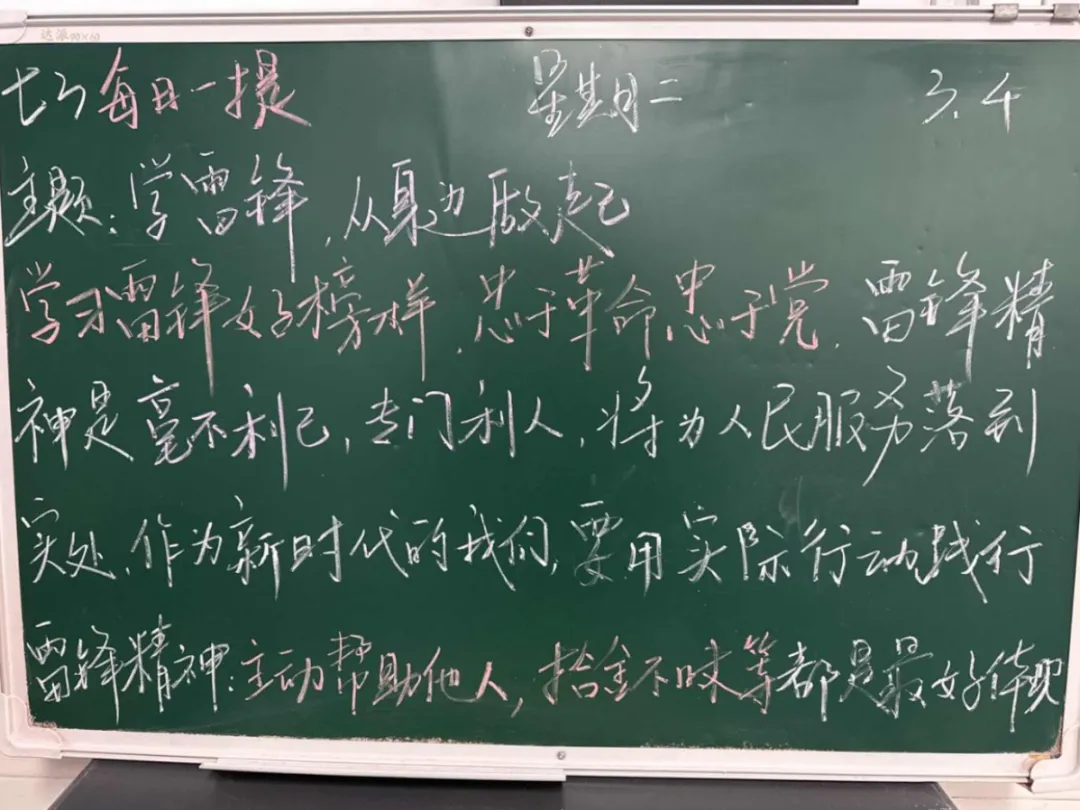 达派90×60
七3每日一提 星期二 3.4
主题:学雷锋,从身边做起
学习雷锋好榜样,忠于革命,忠于党.雷锋精
神是毫不利己,专门利人,将为人民服务落到
实处,作为新时代的我们,要用实际行动践行
雷锋精神:主动帮助他人,拾金不昧等都是最好体现